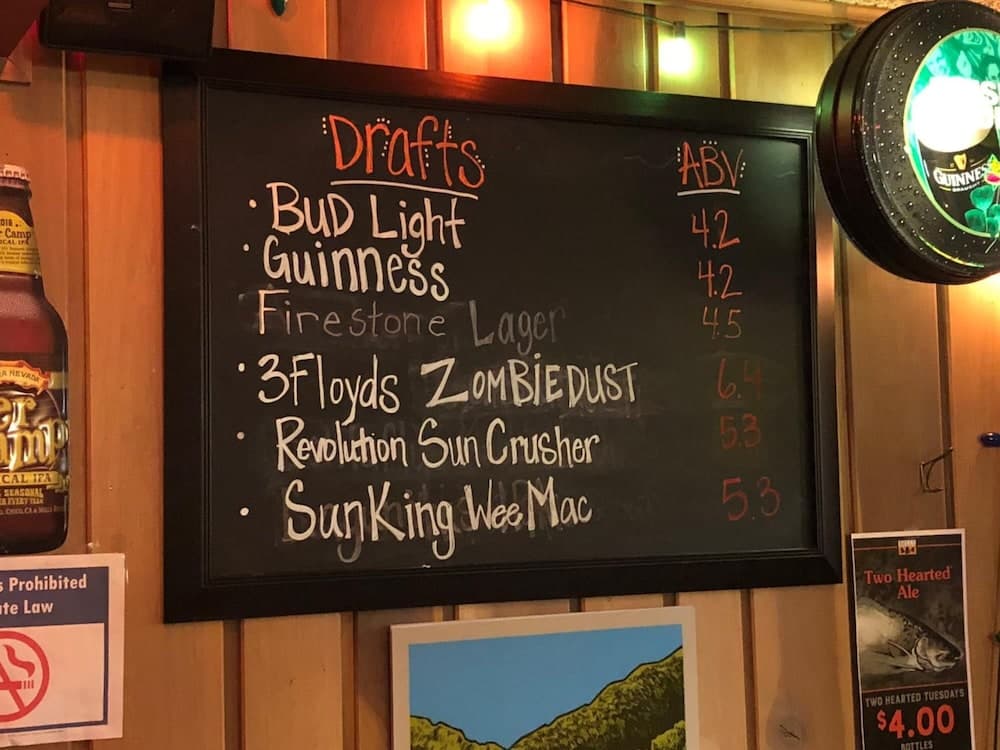 Drafts ABV
· Bud Light 4.2
· Guinness 4.2
Firestone Lager 4.5
· 3Floyds ZOMBIEDUST 6.4
· Revolution Sun Crusher 5.3
· SunKing Wee Mac 5.3
GUINNESS
DRAUGHT
Camp
NEVADA
CAL IPA
SEASONAL
Prohibited
Law
Two Hearted
Ale
TWO HEARTED TUESDAYS
$4.00
BOTTLES